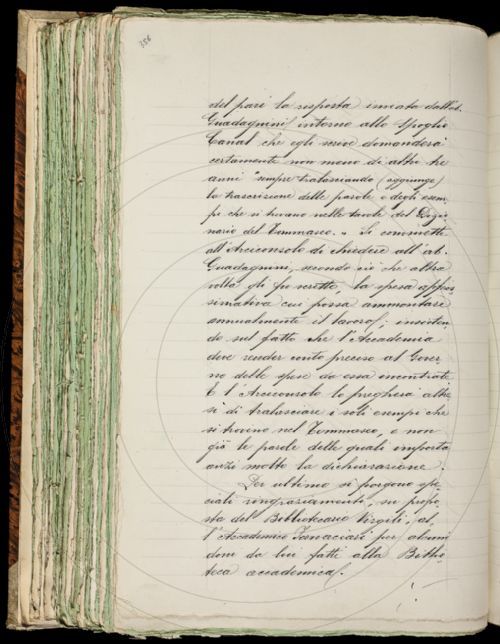 386
del pari la risposta inviata dall'ab.
Guadagnini intorno allo Spoglio
Canal che egli scrive domanderà
certamente non meno di altri tre
anni "sempre tralasciando (aggiunge)
la trascrizione delle parole e degli esem-
pi che si trovano nelle tavole del Dizio-
nario del Tommaseo." Si commette
all'Arciconsolo di chiedere all'ab.
Guadagnini, secondo ciò che altra
volta gli fu scritto, la spesa appros-
simativa cui possa ammontare
annualmente il lavoro; insisten-
do sul fatto che l'Accademia
deve render conto preciso al Gover-
no delle spese da essa incontrate.
E l'Arciconsolo lo pregherà altre-
sì di tralasciare i soli esempi che
si trovino nel Tommaseo, e non
già le parole delle quali importa
anzi molto la dichiarazione.
Per ultimo si porgono spe-
ciali ringraziamenti, su propo-
sta del Bibliotecario Virgili, al-
l'Accademico Tanacciari per alcuni
doni da lui fatti alla Biblio-
teca accademica.